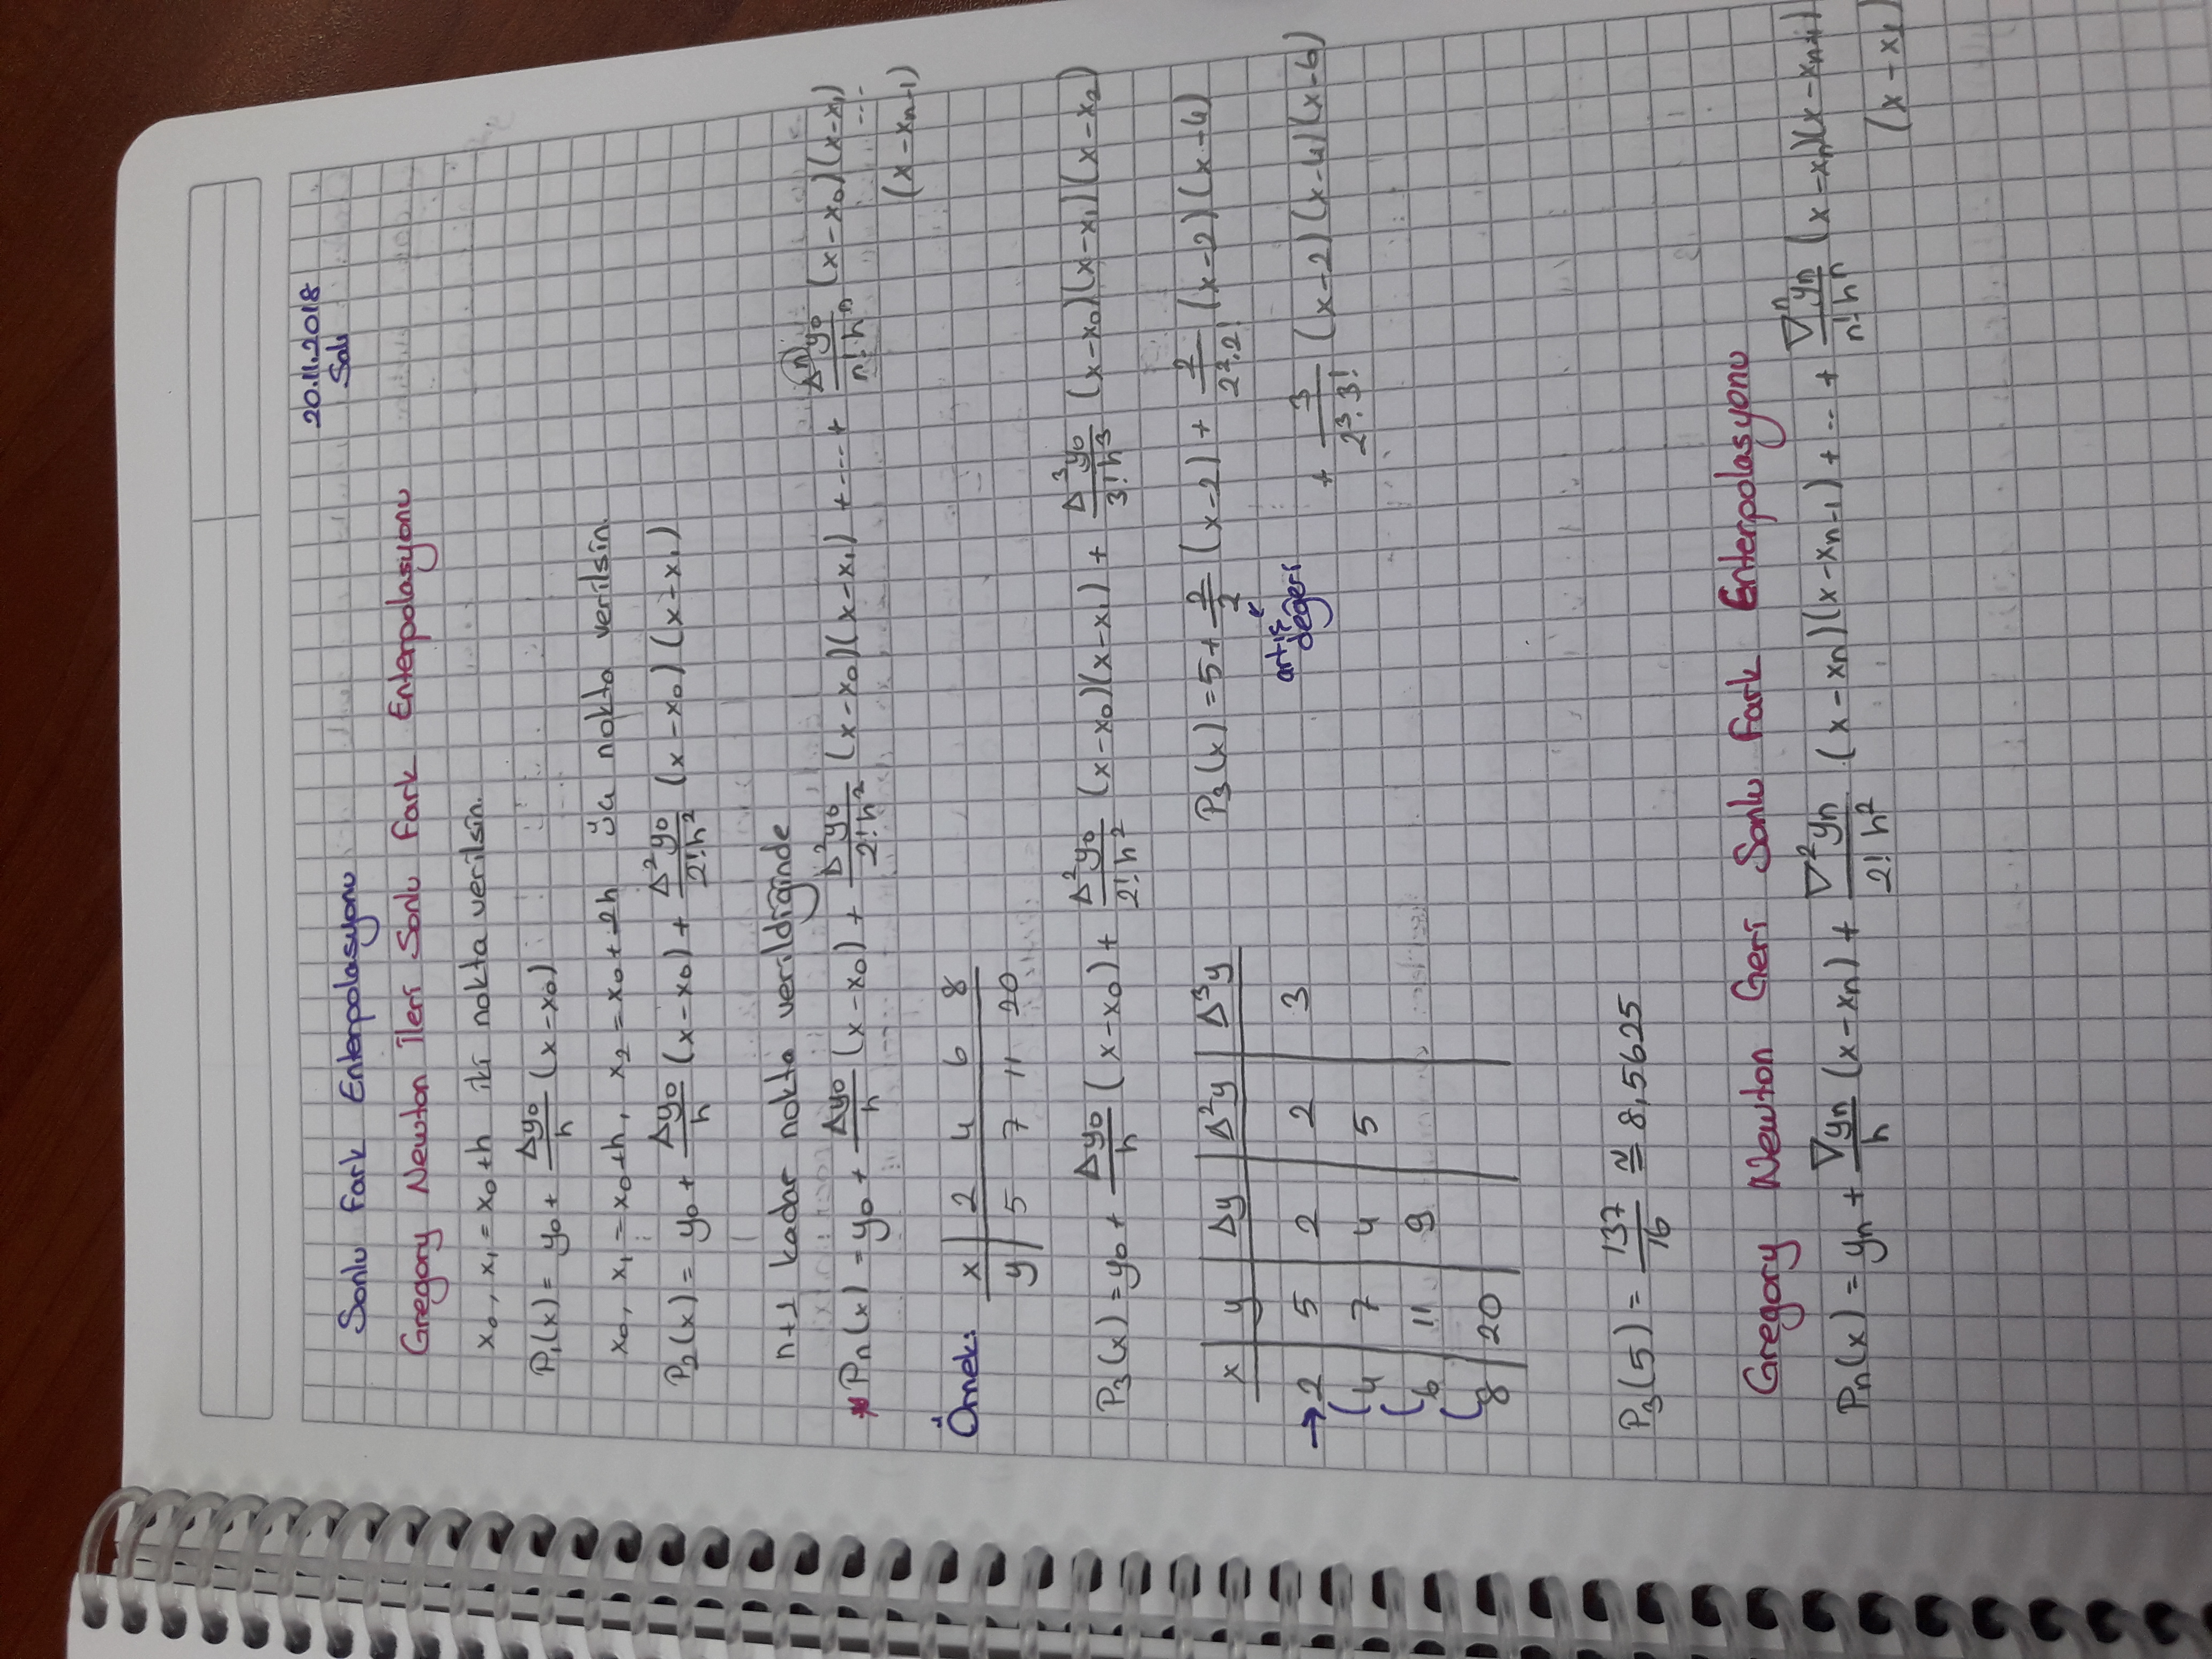 20.11.2018
Salı
Sonlu Fark Enterpolasyonu
Gregory Newton İleri Sonlu Fark Enterpolasyonu
x₀, x₁ = x₀+h iki nokta verilsin.
P₁(x) = y₀ + Δy₀/h (x-x₀)
x₀, x₁ = x₀+h, x₂ = x₀+2h üç nokta verilsin.
P₂(x) = y₀ + Δy₀/h (x-x₀) + Δ²y₀/2!h² (x-x₀)(x-x₁)
n+1 kadar nokta verildiğinde
* Pn(x) = y₀ + Δy₀/h (x-x₀) + Δ²y₀/2!h² (x-x₀)(x-x₁) + ---- + Δⁿy₀/n!hⁿ (x-x₀)(x-x₁) ---
(x-xn-1)
Örnek: x | 2 4 6 8
y | 5 7 11 20
P₃(x) = y₀ + Δy₀/h (x-x₀) + Δ²y₀/2!h² (x-x₀)(x-x₁) + Δ³y₀/3!h³ (x-x₀)(x-x₁)(x-x₂)
x | y | Δy | Δ²y | Δ³y
→ 2 | 5 | 2 | 2 | 3
4 | 7 | 4 | 5
6 | 11 | 9
8 | 20
P₃(x) = 5 + 2/2 (x-2) + 2/2².2! (x-2)(x-4)
artış
değeri
+ 3/2³.3! (x-2)(x-4)(x-6)
P₃(5) = 137/16 ≅ 8,5625
Gregory Newton Geri Sonlu Fark Enterpolasyonu
Pn(x) = yn + ∇yn/h (x-xn) + ∇²yn/2! h² (x-xn)(x-xn-1) + -- + ∇ⁿyn/n!hⁿ (x-xn)(x-xn-1)
(x-x₁)